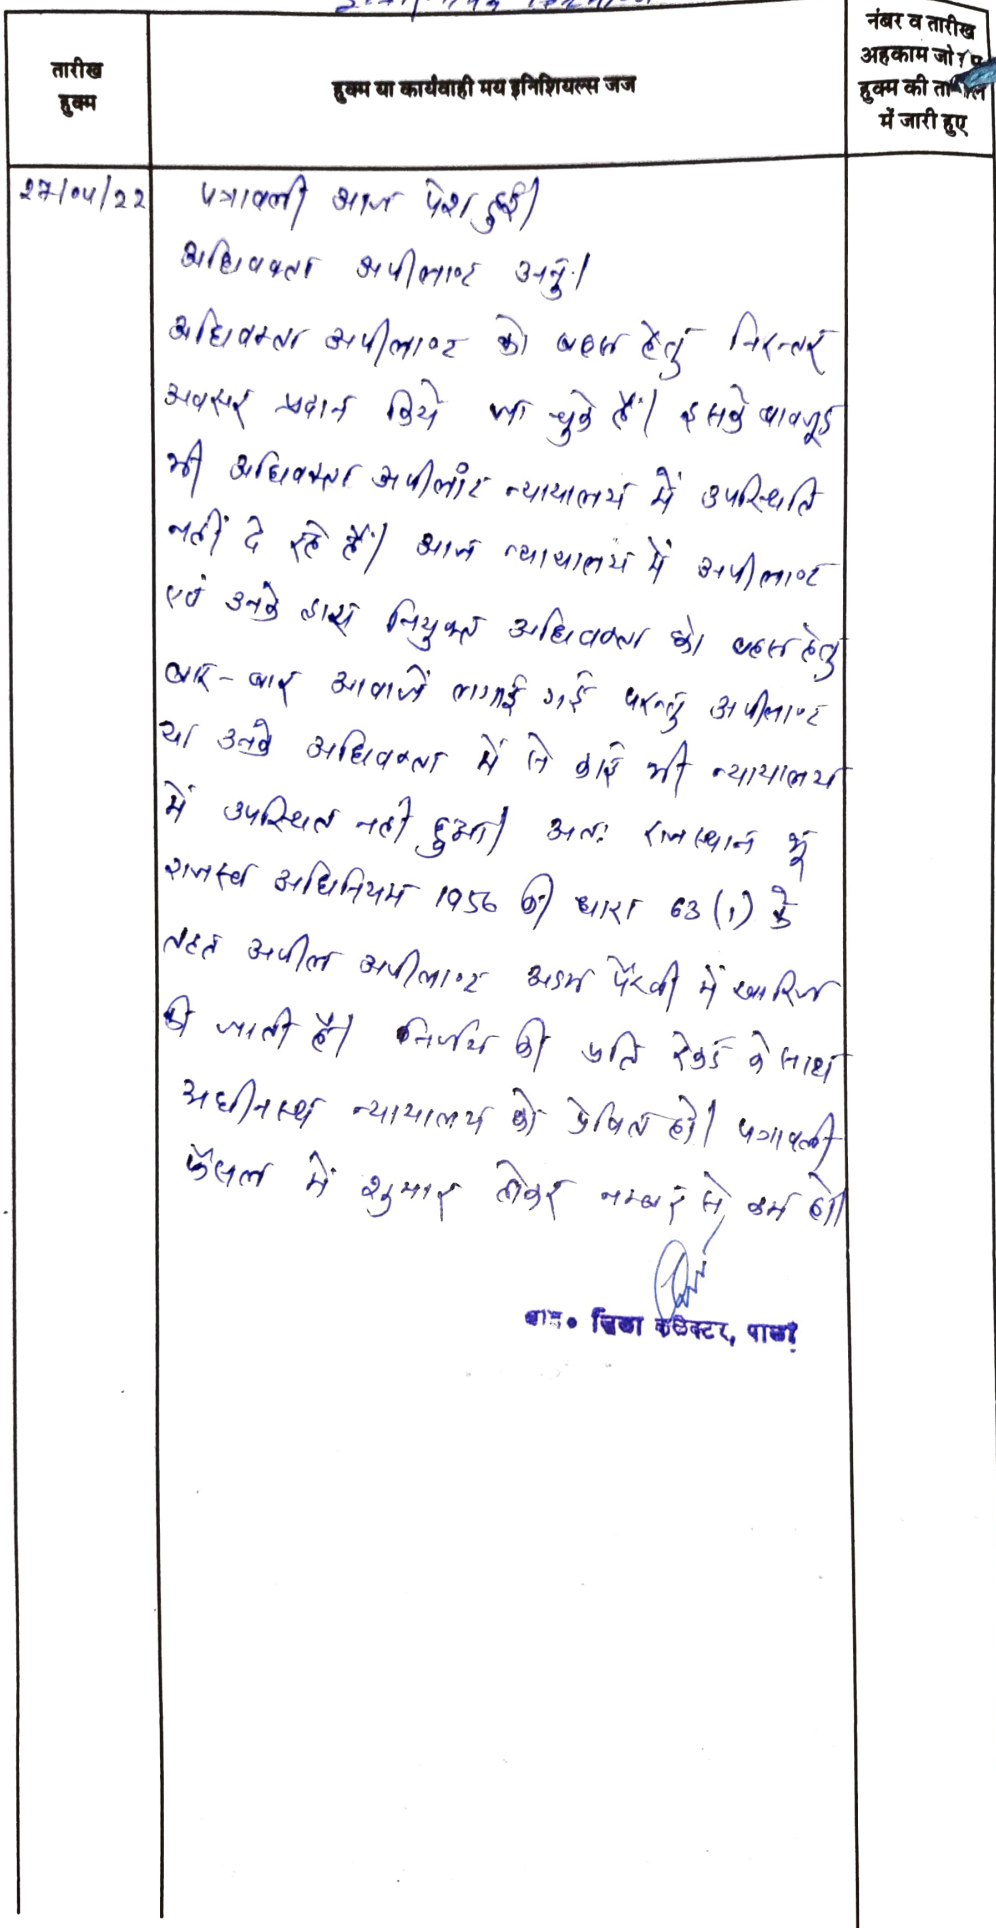 तारीख
हुक्म
हुक्म या कार्यवाही मय इनिशियल्स जज
नंबर व तारीख
अहकाम जो
हुक्म की
में जारी हुए
27/04/22
पत्रावली आज पेश हुई।
अधिवक्ता अपीलाण्ट अनु.।
अधिवक्ता अपीलाण्ट को बहस हेतु निरन्तर
अवसर प्रदान किये जा चुके हैं। इसके बावजूद
भी अधिवक्ता अपीलांट न्यायालय में उपस्थिति
नहीं दे रहे हैं। आज न्यायालय में अपीलाण्ट
एवं उनके द्वारा नियुक्त अधिवक्ता को बहस हेतु
बार-बार आवाजें लगाई गई परन्तु अपीलाण्ट
या उनके अधिवक्ता में से कोई भी न्यायालय
में उपस्थित नहीं हुआ। अतः राजस्थान भू
राजस्व अधिनियम 1956 की धारा 63 (1) के
तहत अपील अपीलाण्ट अदम पैरवी में खारिज
की जाती है। निर्णय की प्रति रेकर्ड के साथ
अधीनस्थ न्यायालय को प्रेषित हो। पत्रावली
फैसल में शुमार होकर नम्बर से कम हो।
जिला कलेक्टर, पाली